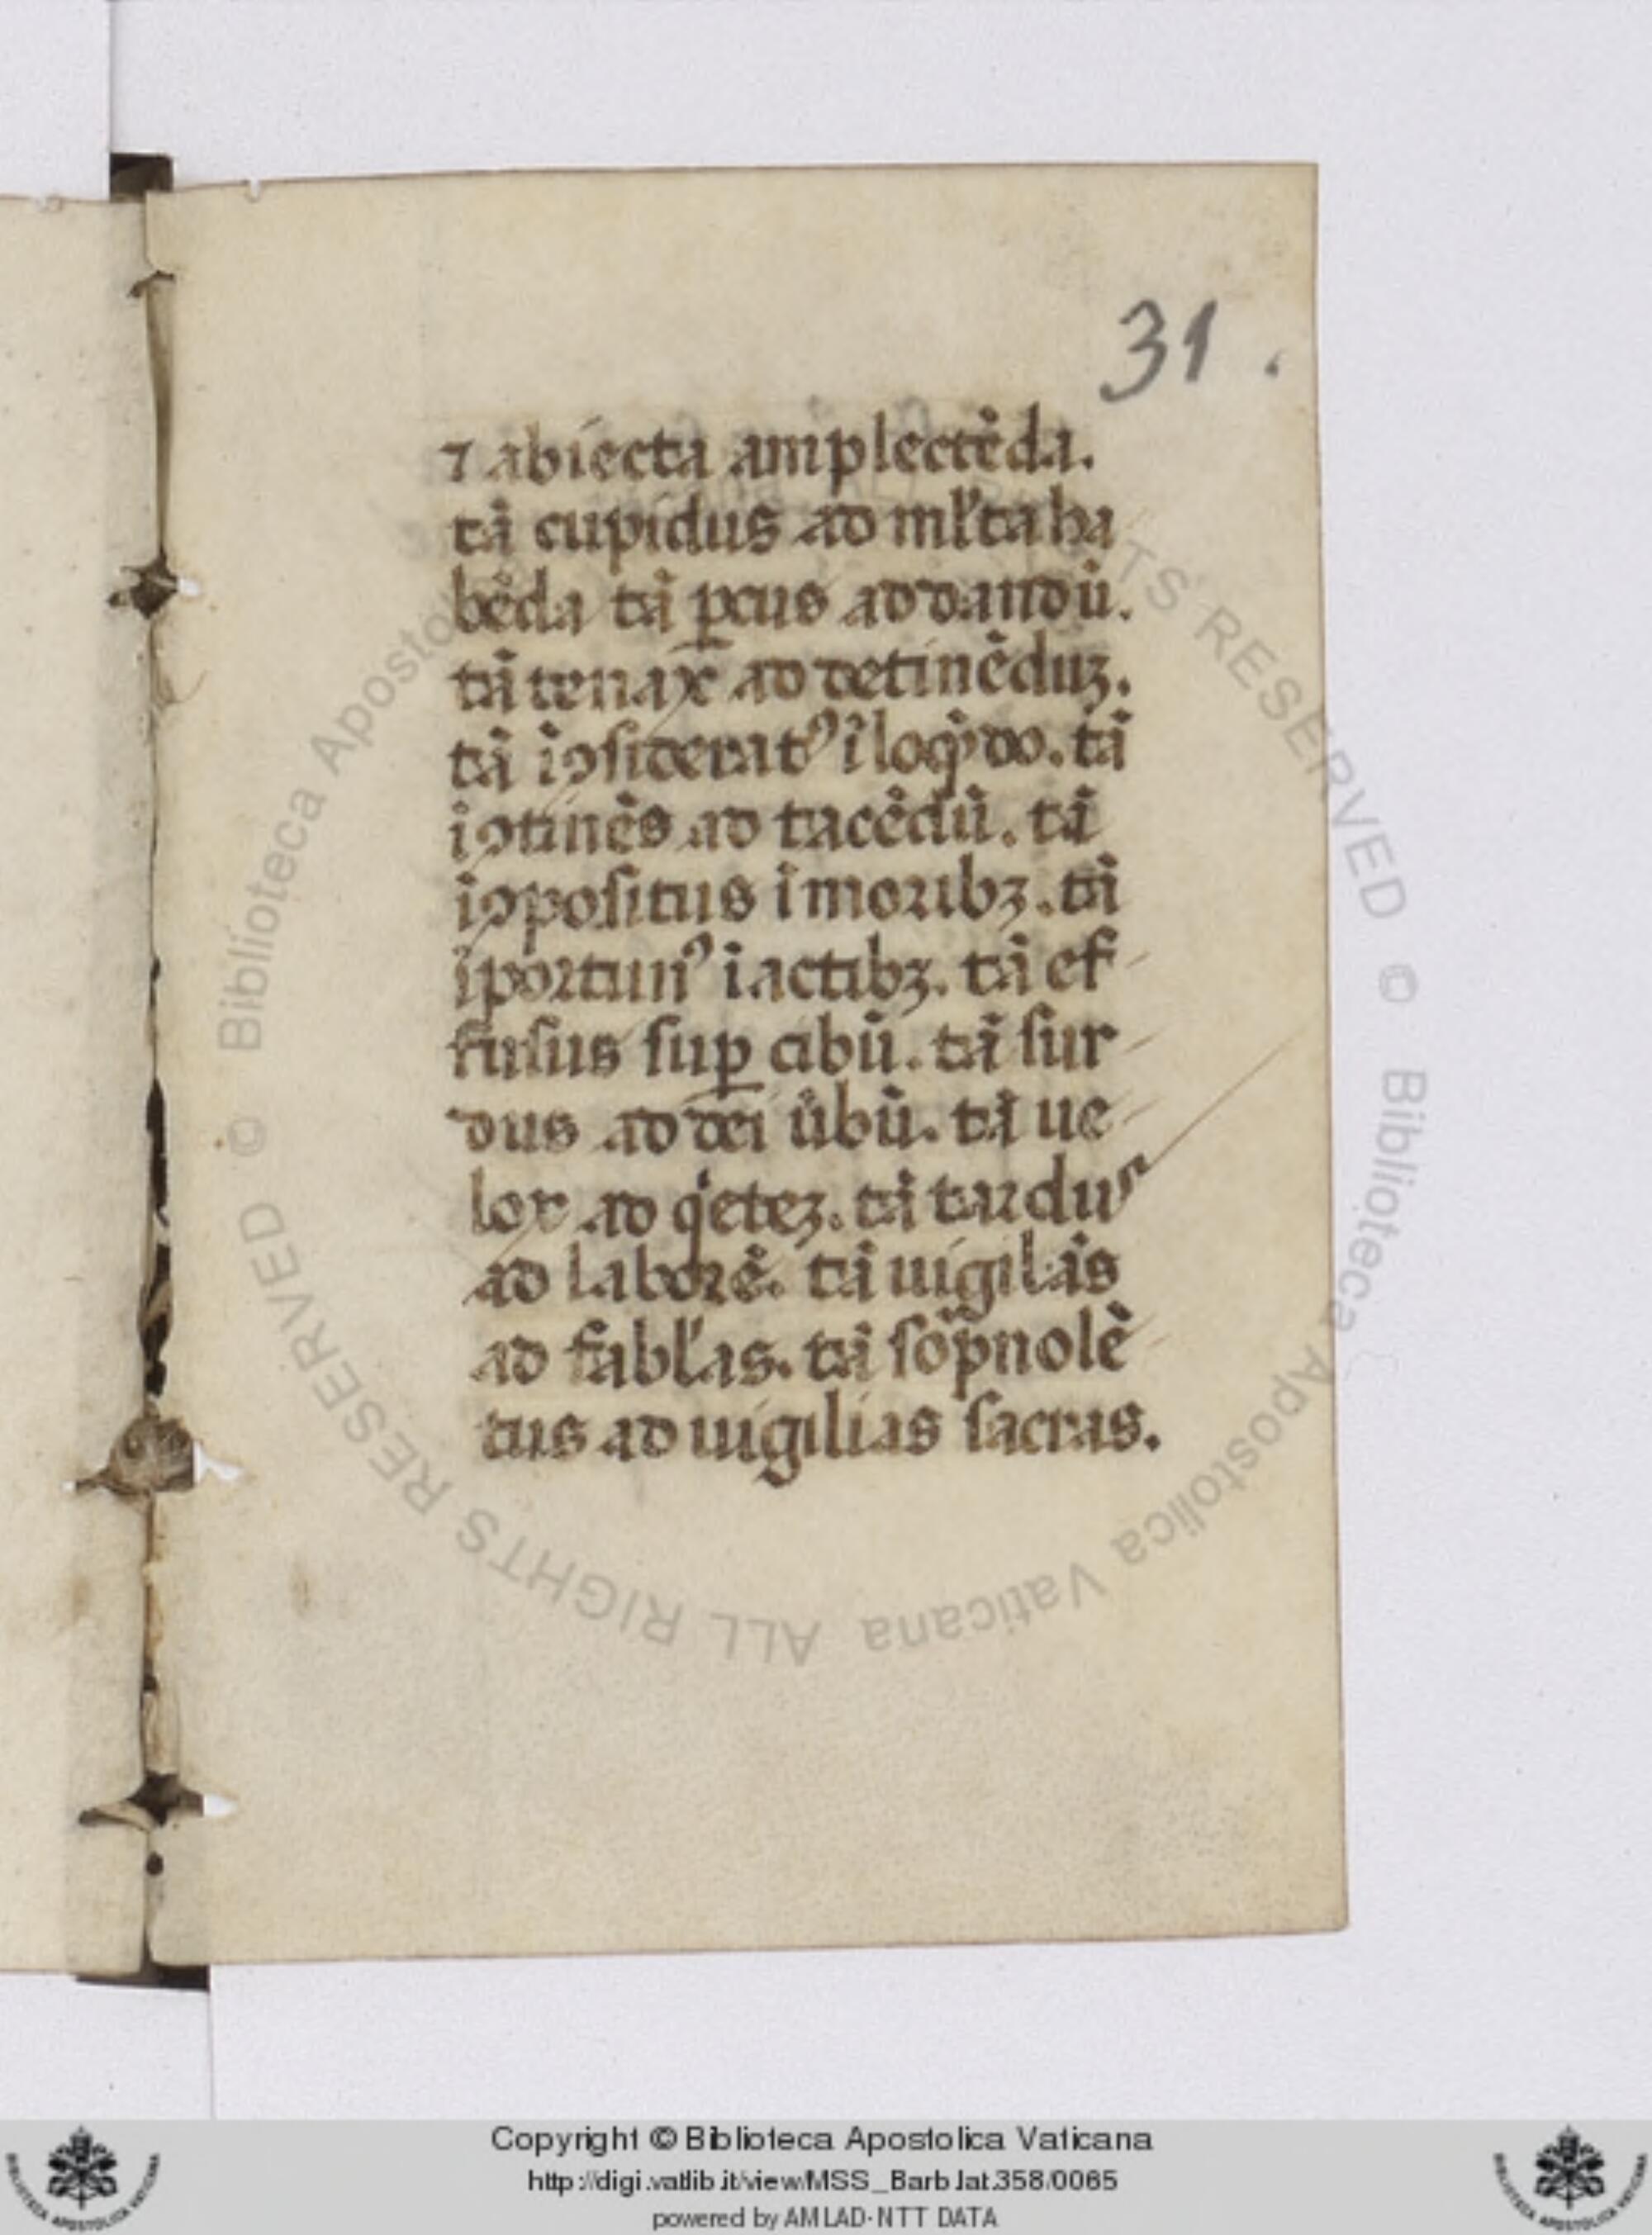 31.
⁊ abiecta amplectēda.
tā cupidus ad ml'ta ha
bēda tā ꝑcus ad dandū.
tā tenax ad detinēduꝫ.
tā īꝯsideratꝰ ī loqͣdo. tā
īꝯtinēs ad tacēdū. tā
īꝯpositus ī moribꝫ. tā
īportunꝰ ī actibꝫ. tā ef-
fusus suꝑ cibū. tā sur-
dus ad dei ūbū. tā ue-
lox ad qͥeteꝫ. tā tardus
ad laborē. tā uigilās
ad fabl'as. tā sōpnolē-
tus ad uigilias sacras.
© Biblioteca Apostolica Vaticana ALL RIGHTS RESERVED
Copyright © Biblioteca Apostolica Vaticana
http://digi.vatlib.it/view/MSS_Barb.lat.358/0065
powered by AMLAD-NTT DATA